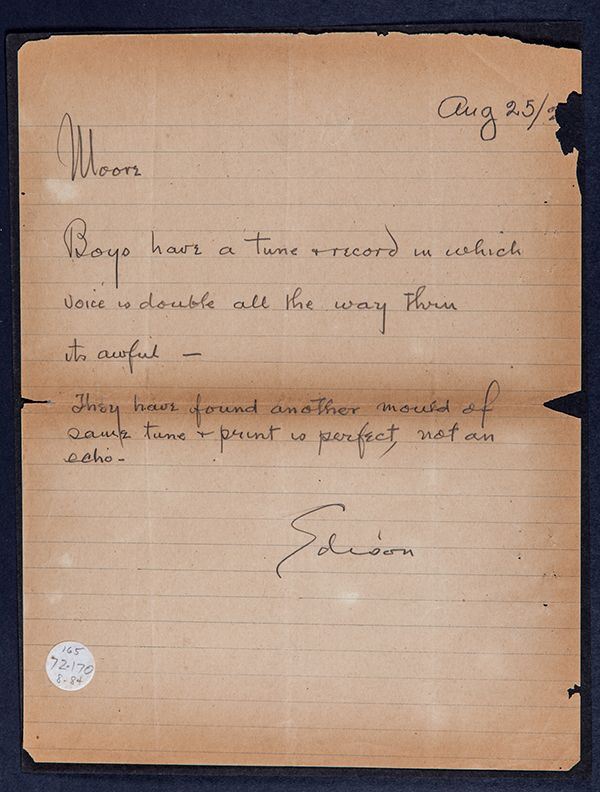 Aug 25/2
Moore
Boys have a tune + record in which
voice is double all the way thru
its awful —
They have found another mould of
same tune + print is perfect, not an
echo-
Edison
165
72-170
8-84